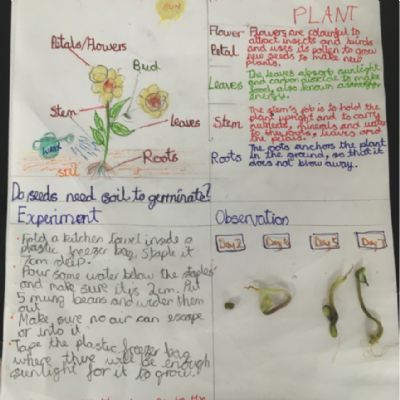 SUN
Petals/Flowers
Bud
Stem
Leaves
Roots
Soil
PLANT
Flower Petal
Flowers are colourful to
attract insects and birds
and uses its pollen to grow
new seeds to make new
plants.
Leaves
The leaves absorb sunlight
and carbon dioxide to make
food, also known as
energy.
Stem
The stem's job is to hold the
plant upright and to carry
nutrients, minerals and water
to the roots, leaves and
Roots
The roots anchors the plant
in the ground, so that it
does not blow away.
Do seeds need soil to germinate?
Experiment
Fold a kitchen towel inside a
plastic freezer bag. Staple it
7cm deep.
Pour some water blow the staples
and make sure it's 2cm. Put
5 mung beans and widen them
out
Make sure no air can escape
or into it.
Tape the plastic freezer bag
where there will be enough
sunlight for it to grow.
Observation
Day 2
Day
Day 5
Day 7